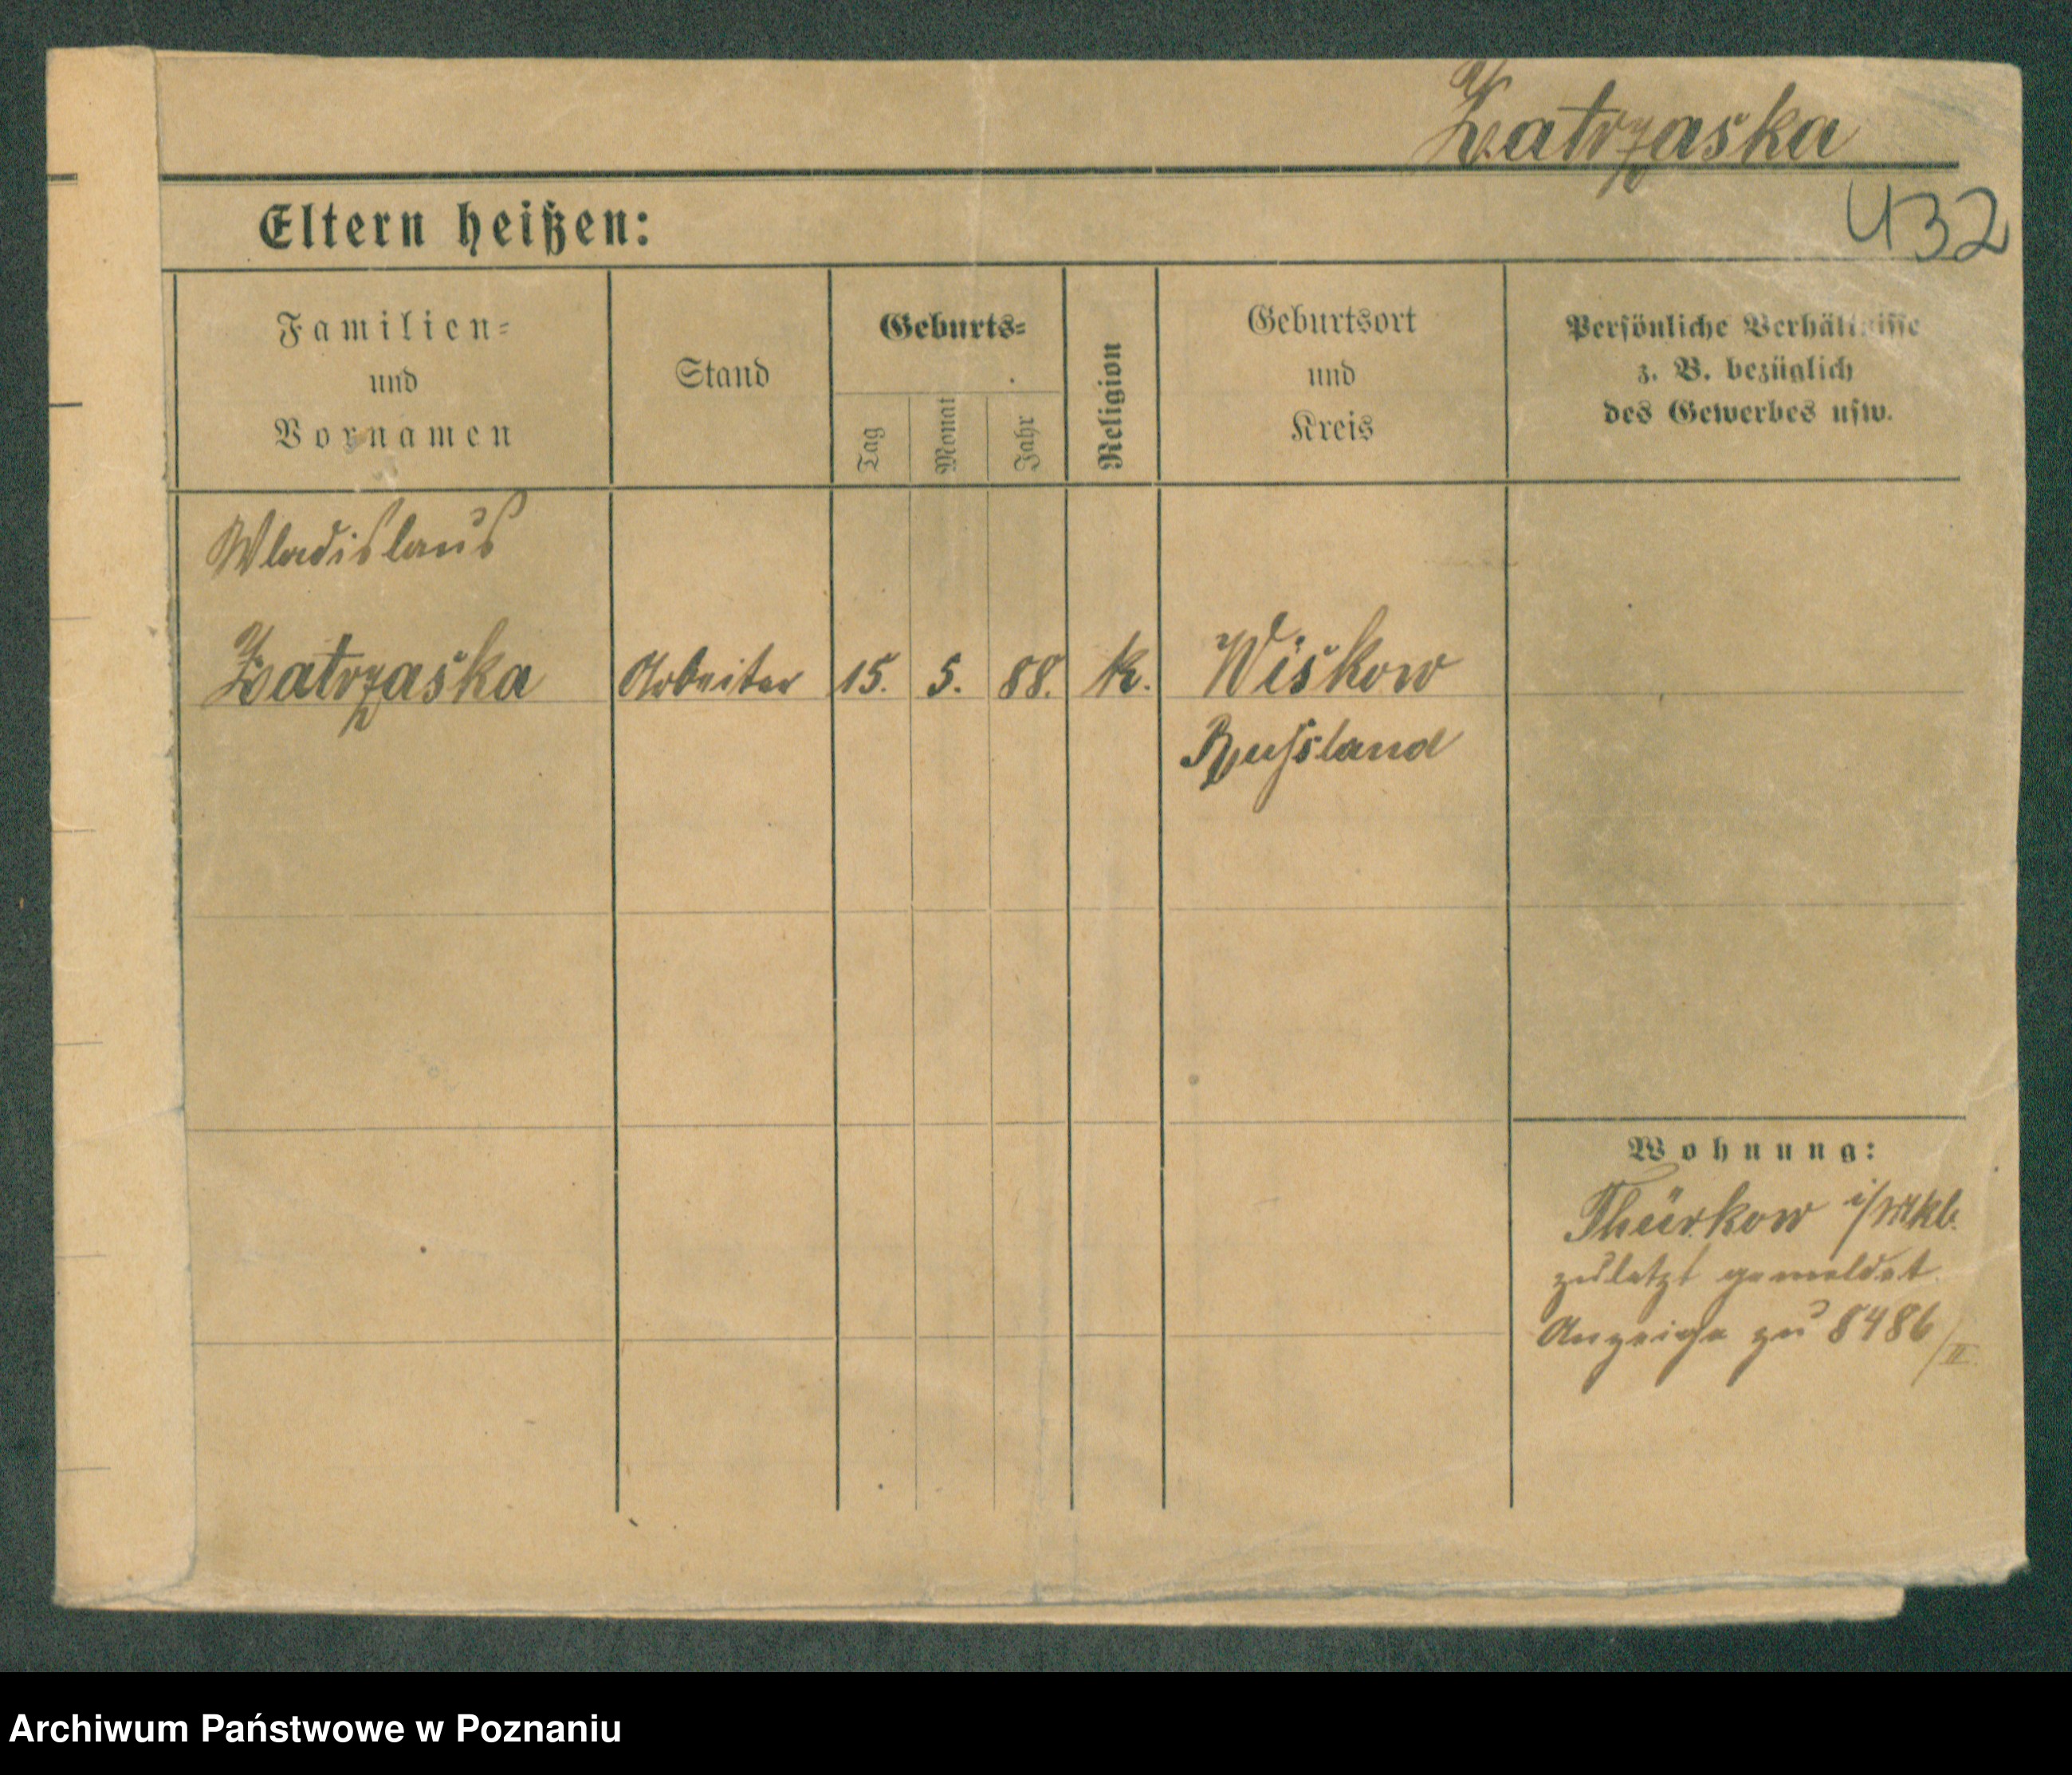 Zatrzaska
432
Eltern heißen:
Familien-
und
Vornamen
Stand
Geburts-
Tag
Monat
Jahr
Religion
Geburtsort
und
Kreis
Persönliche Verhältnisse
z. B. bezüglich
des Gewerbes usw.
Wladislaus
Zatrzaska Arbeiter 15. 5. 88. k. Wiskow
Russland
Wohnung:
Thürkow i/Mkl.
zuletzt gemeldet.
Anzeige zu 8486/II.
Archiwum Państwowe w Poznaniu